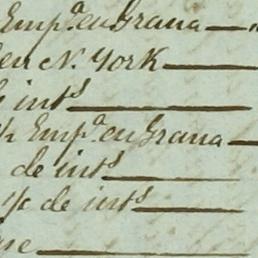 Emp.a en Grana
en N. York
de ints
Emp.a en Grana
de ints
% de ints